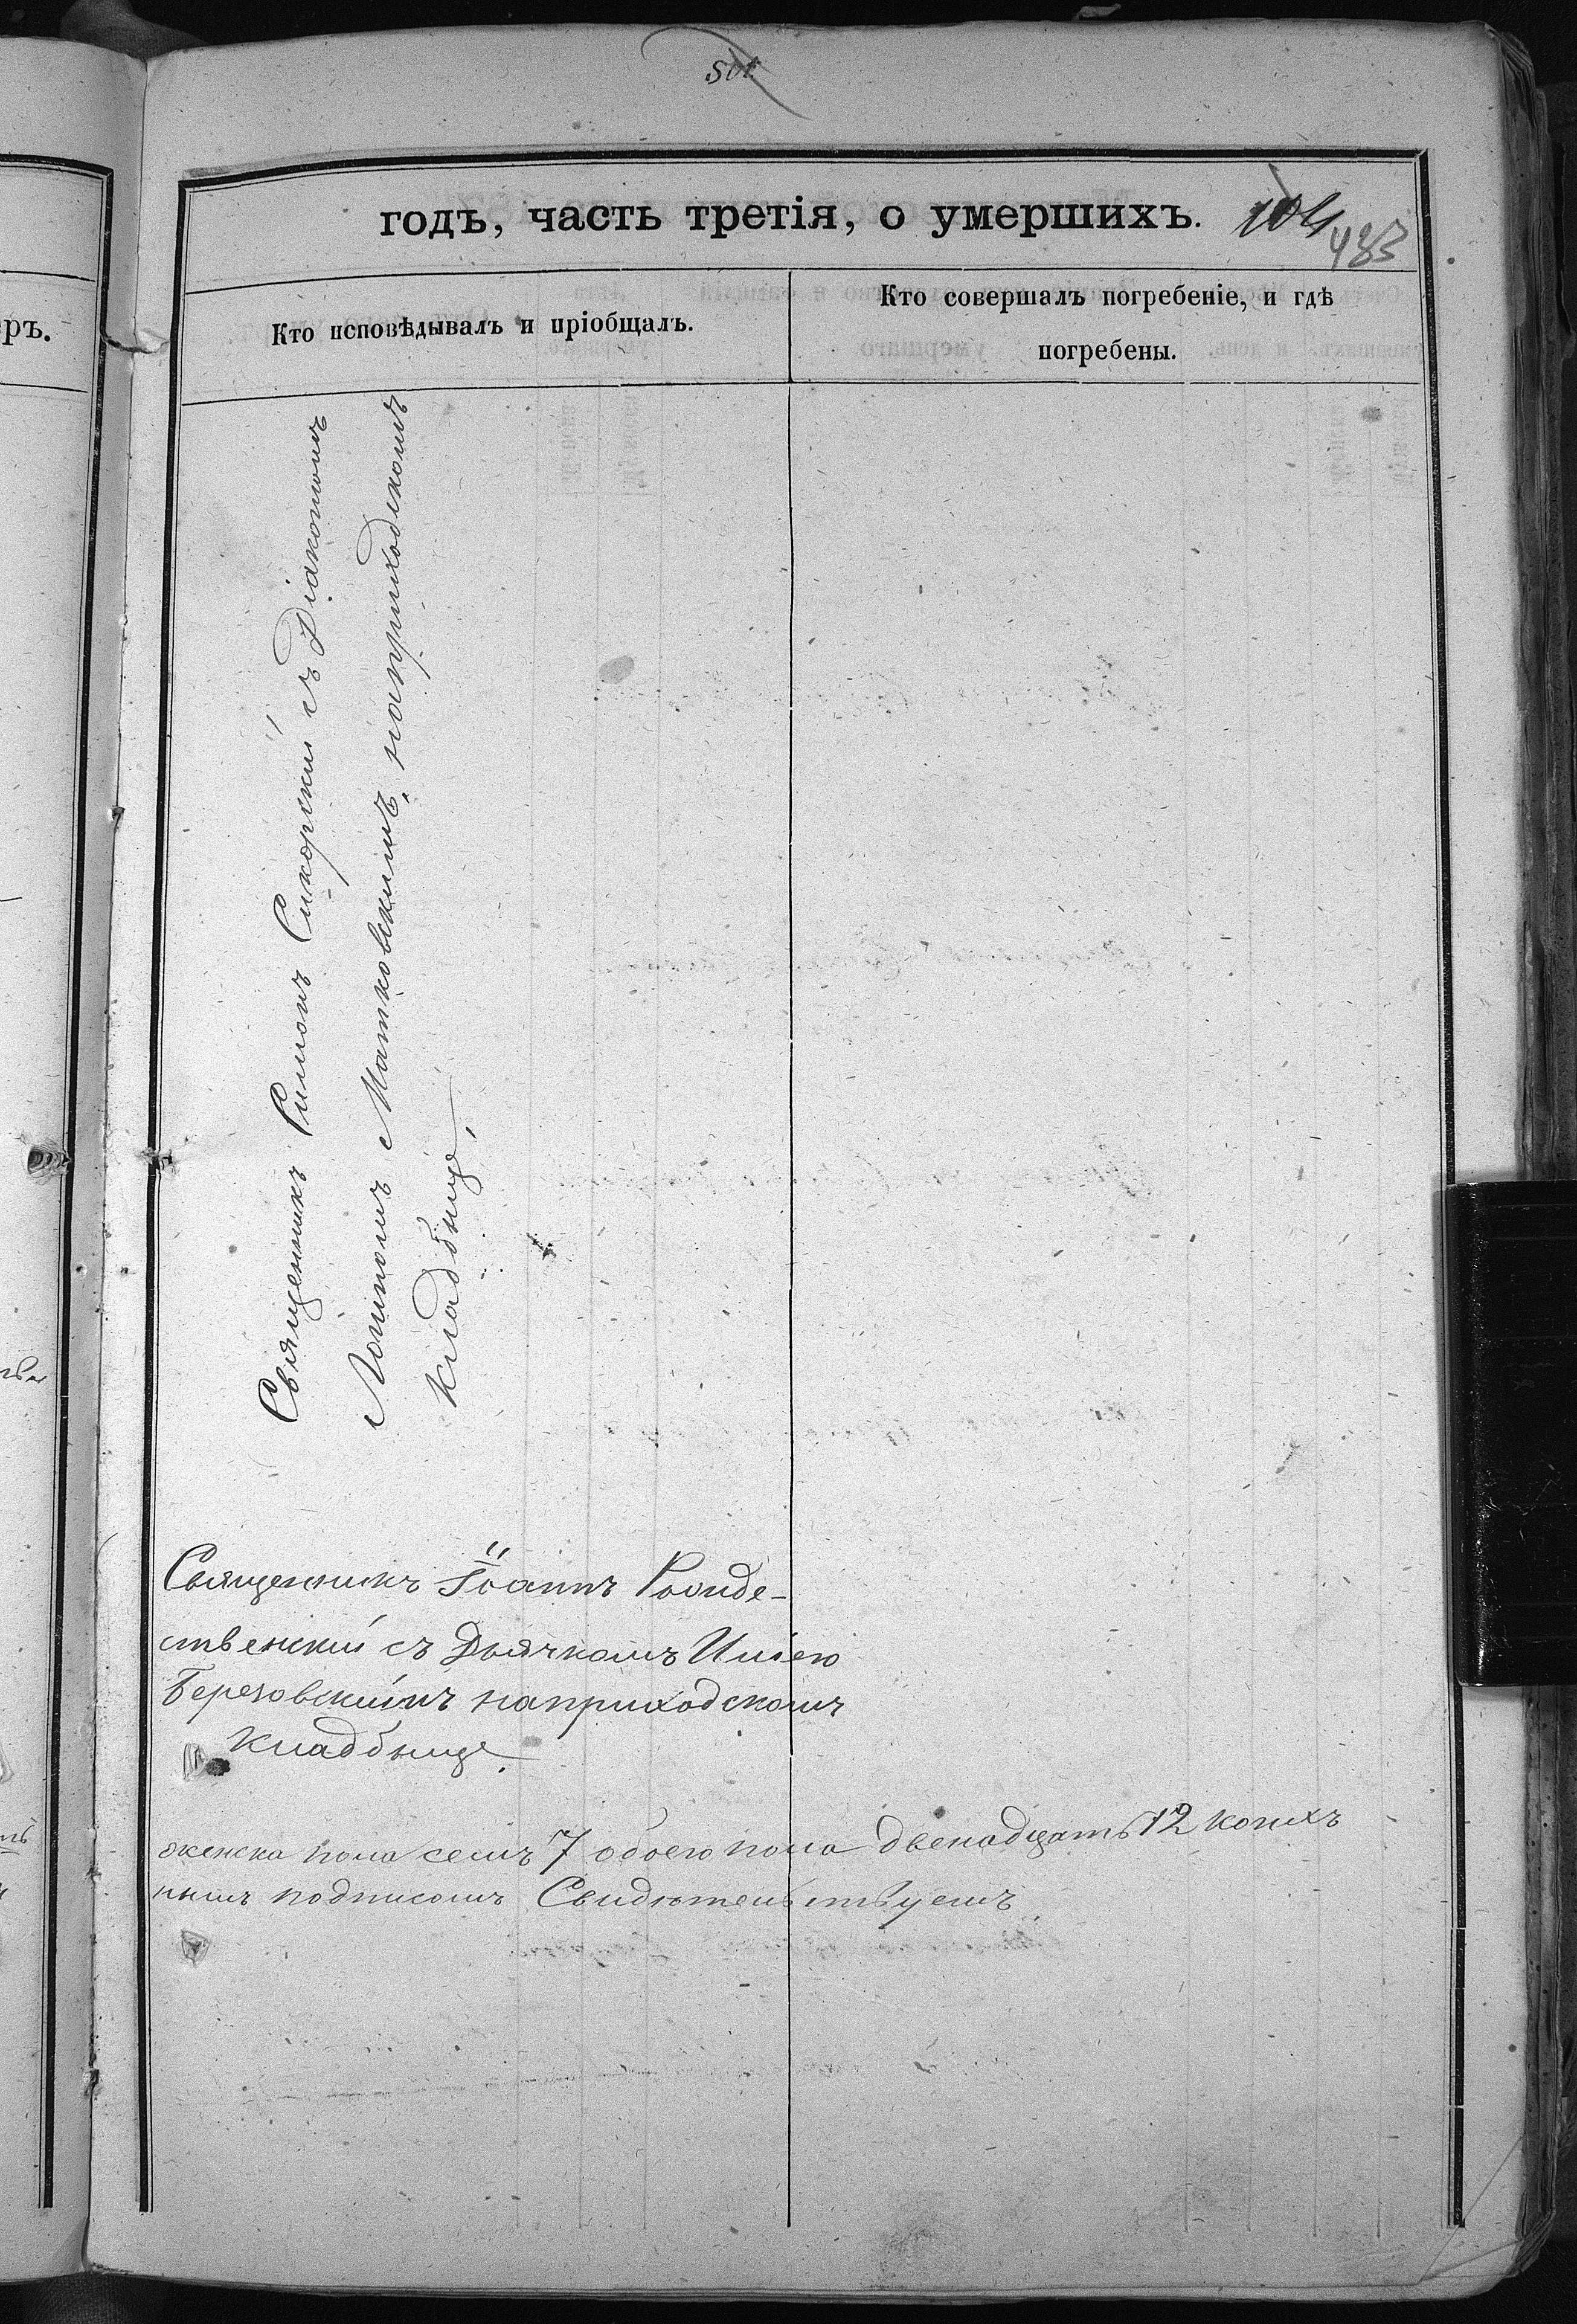 501
годъ, часть третія, о умершихъ.
104
483
Кто исповѣдывалъ и пріобщалъ.
Кто совершалъ погребеніе, и гдѣ
погребены.
еръ.
Священникъ Симонъ Сикорскій съ Діакономъ
Матковскимъ, наприходскомъ
кладбищѣ,
Священникъ Іоаннъ Рожде-
ственскій съ Дьячкомъ
Березовскимъ наприходскомъ
кладбищѣ.
женска пола семъ 7 обоего пола двенадцать 12 коихъ
нымъ подписомъ Свидѣтельствуемъ